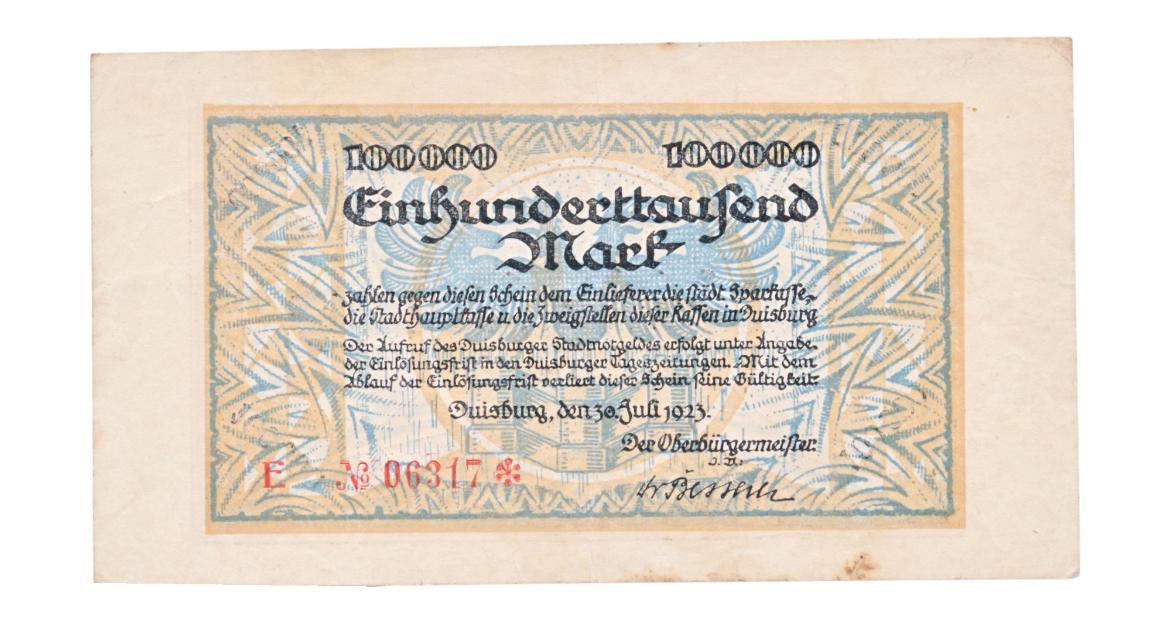 100000 100000
Einhunderttausend
Mark
zahlen gegen diesen Schein dem Einlieferer die städt. Sparkasse,
die Stadthauptkasse u. die Zweigstellen dieser Kassen in Duisburg
Der Aufruf des Duisburger Stadtnotgeldes erfolgt unter Angabe
der Einlösungsfrist in den Duisburger Tageszeitungen. Mit dem
Ablauf der Einlösungsfrist verliert dieser Schein seine Gültigkeit.
Duisburg, den 30. Juli 1923.
Der Oberbürgermeister.
E № 06317 ✻